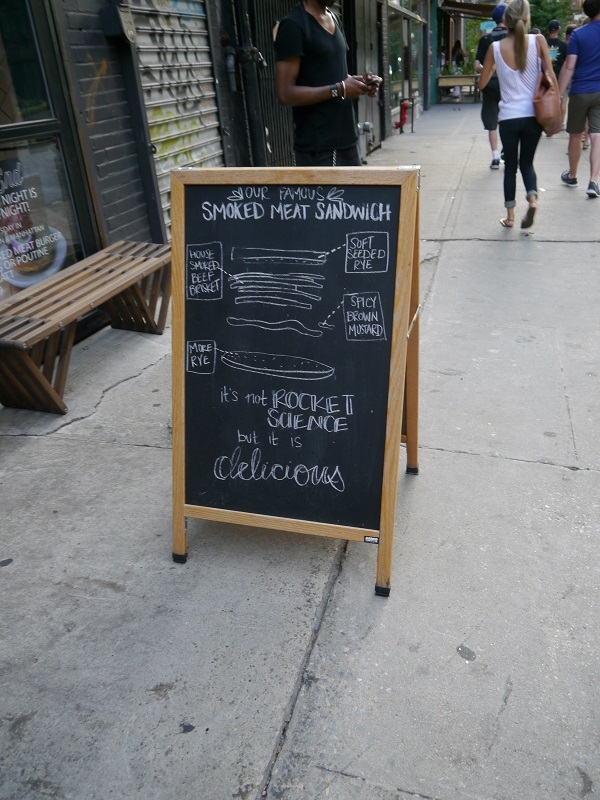 OUR FAMOUS
SMOKED MEAT SANDWICH
SOFT
SEEDED
RYE
HOUSE
SMOKED
BEEF
BRISKET
SPICY
BROWN
MUSTARD
MORE
RYE
it's not ROCKET
SCIENCE
but it is
delicious
NIGHT IS
NIGHT!
MANHATTAN
MEAT BURGER
POUTINE